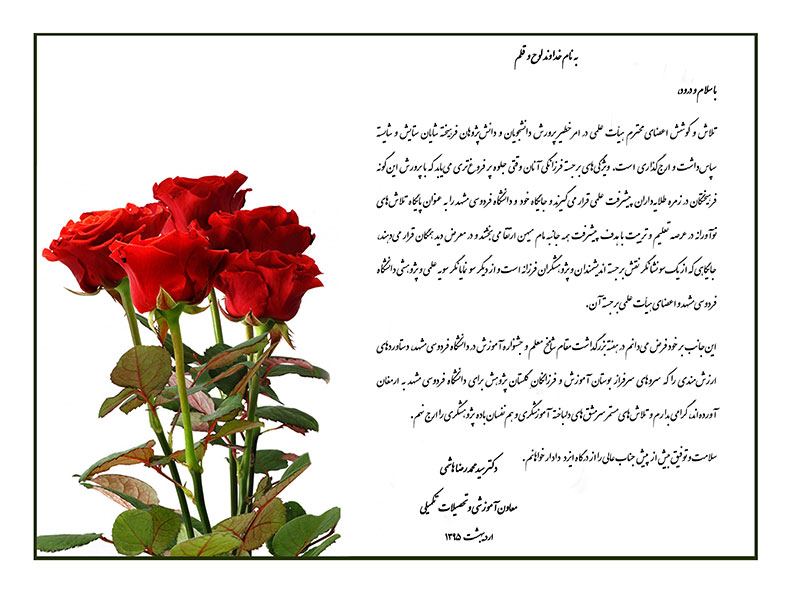 به نام خداوند لوح و قلم
با سلام و درود،
تلاش و کوشش اعضای محترم هیأت علمی در امر خطیر پرورش دانشجویان و دانش‌پژوهان فرهیخته شایان ستایش و شایسته
سپاس‌داشت و ارج‌گذاری است. ویژگی‌های برجسته فرزانگی آنان وقتی جلوه پر فروغ‌تری می‌یابد که با پرورش این‌گونه
فرهیختگان در زمره طلایه‌داران پیشرفت علمی قرار می‌گیرند و جایگاه خود و دانشگاه فردوسی مشهد را به عنوان پایگاه تلاش‌های
نوآورانه در عرصه تعلیم و تربیت با هدف پیشرفت همه جانبه مام میهن ارتقا می‌بخشند و در معرض دید همگان قرار می‌دهند،
جایگاهی که از یک سو نشانگر نقش برجسته اندیشمندان و پژوهشگران فرزانه است و از دیگر سو نمایانگر سویه علمی و پژوهشی دانشگاه
فردوسی مشهد و اعضای هیأت علمی برجسته آن.
این‌جانب بر خود فرض می‌دانم در هفته بزرگداشت مقام شامخ معلم و جشنواره آموزش در دانشگاه فردوسی مشهد، دستاوردهای
ارزش‌مندی را که سروهای سرفراز بوستان آموزش و فرزانگان گلستان پژوهش برای دانشگاه فردوسی مشهد به ارمغان
آورده‌اند، گرامی بدارم و تلاش‌های مستمر سرمشق‌های دلباخته آموزشگری و هم نفسان باده پژوهشگری را ارج نهم.
سلامت و توفیق بیش از پیش جناب عالی را از درگاه ایزد دادار خواهانم.
دکتر سید محمد رضا هاشمی
معاون آموزشی و تحصیلات تکمیلی
اردیبهشت ۱۳۹۵